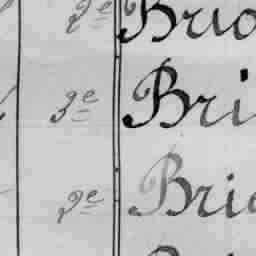 2e Brig
3e Bri
2e Brig